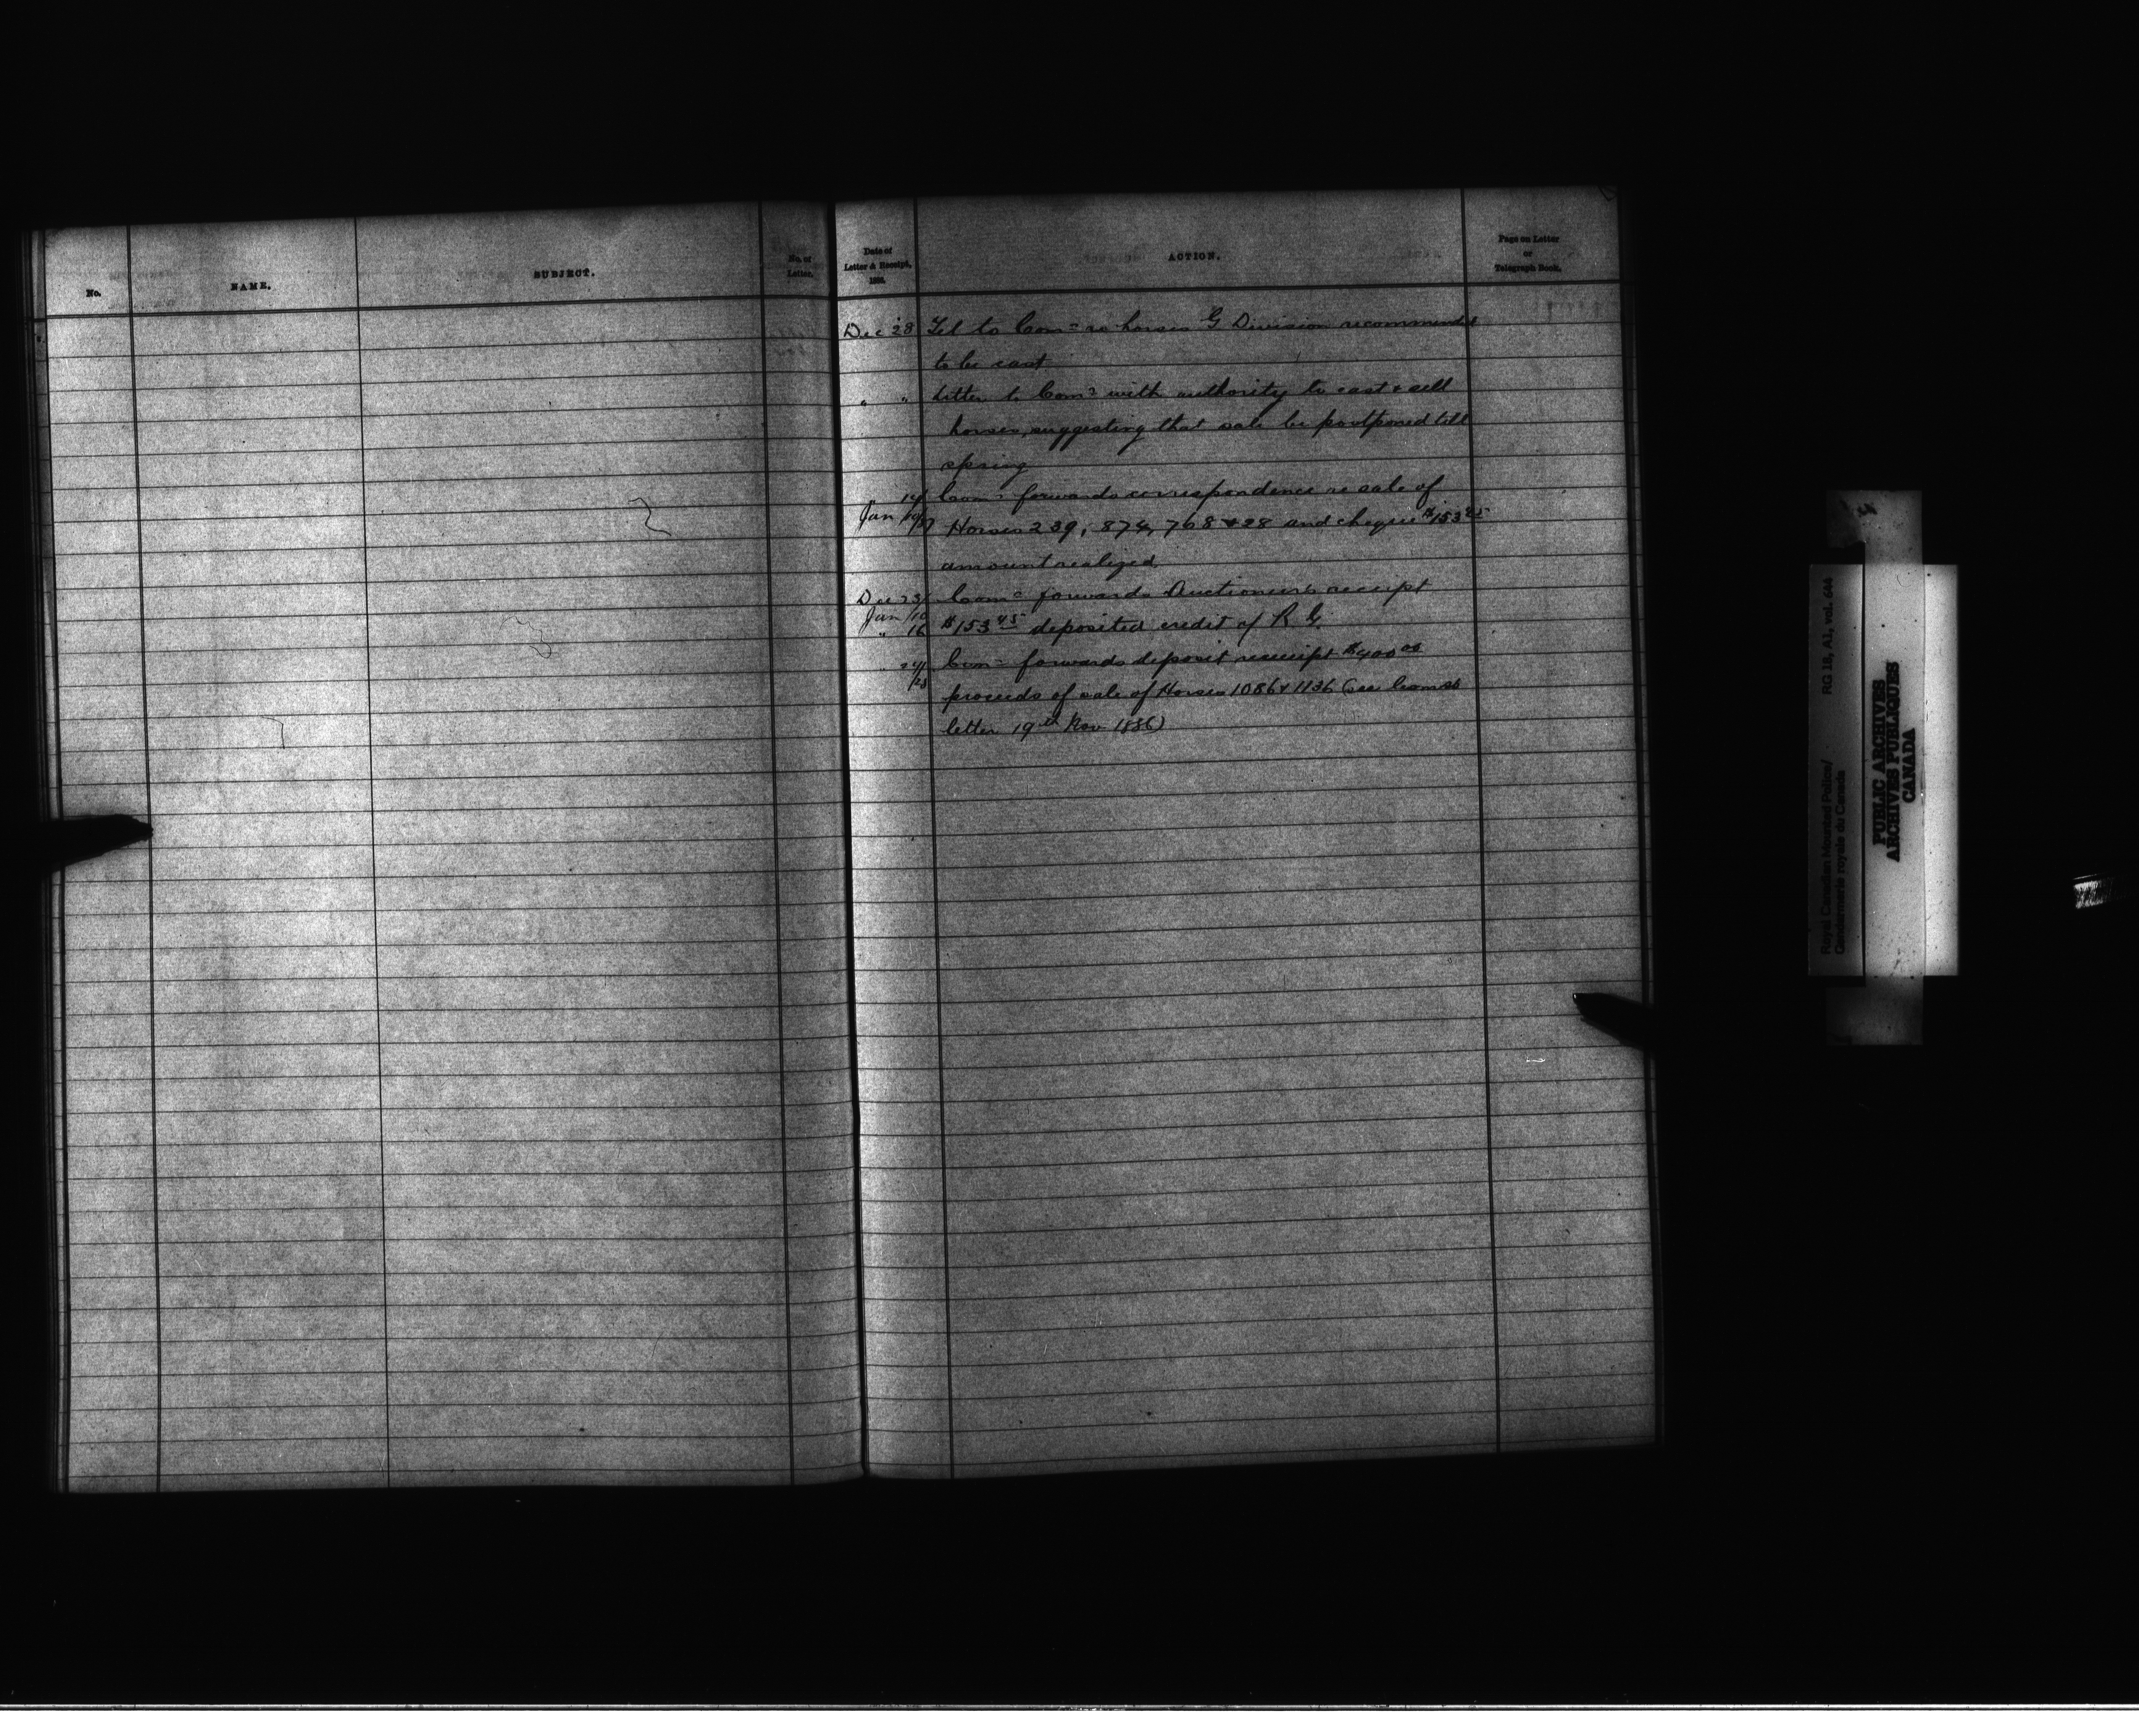 No.
NAME.
SUBJECT.
No. of
Letter.
Date of
Letter & Receipt,
188
ACTION.
Page on Letter
or
Telegraph Book.
Dec 28 Tel to Com<sup>r</sup> re horses G Division recommended
to be cast
" " Letter to Com<sup>r</sup> with authority to cast & sell
horses, suggesting that sale be postponed till
spring
Jan 14/19/87 Com<sup>r</sup> forwards correspondence re sale of
Horses 239, 874, 768 & 28 and cheque
amount realized
Dec 23/ Com<sup>r</sup> forwards Auctioneers receipt
Jan /10
" 16 $153 45 deposited credit of R. G.
" 24/ Com<sup>r</sup> forwards deposit receipt $400 00
proceeds of sale of Horses 1086 & 1136 (see Comrs
letter 19th Nov 1886)
Royal Canadian Mounted Police/
Gendarmerie royale du Canada
RG 18, A1, vol. 644
PUBLIC ARCHIVES
ARCHIVES PUBLIQUES
CANADA